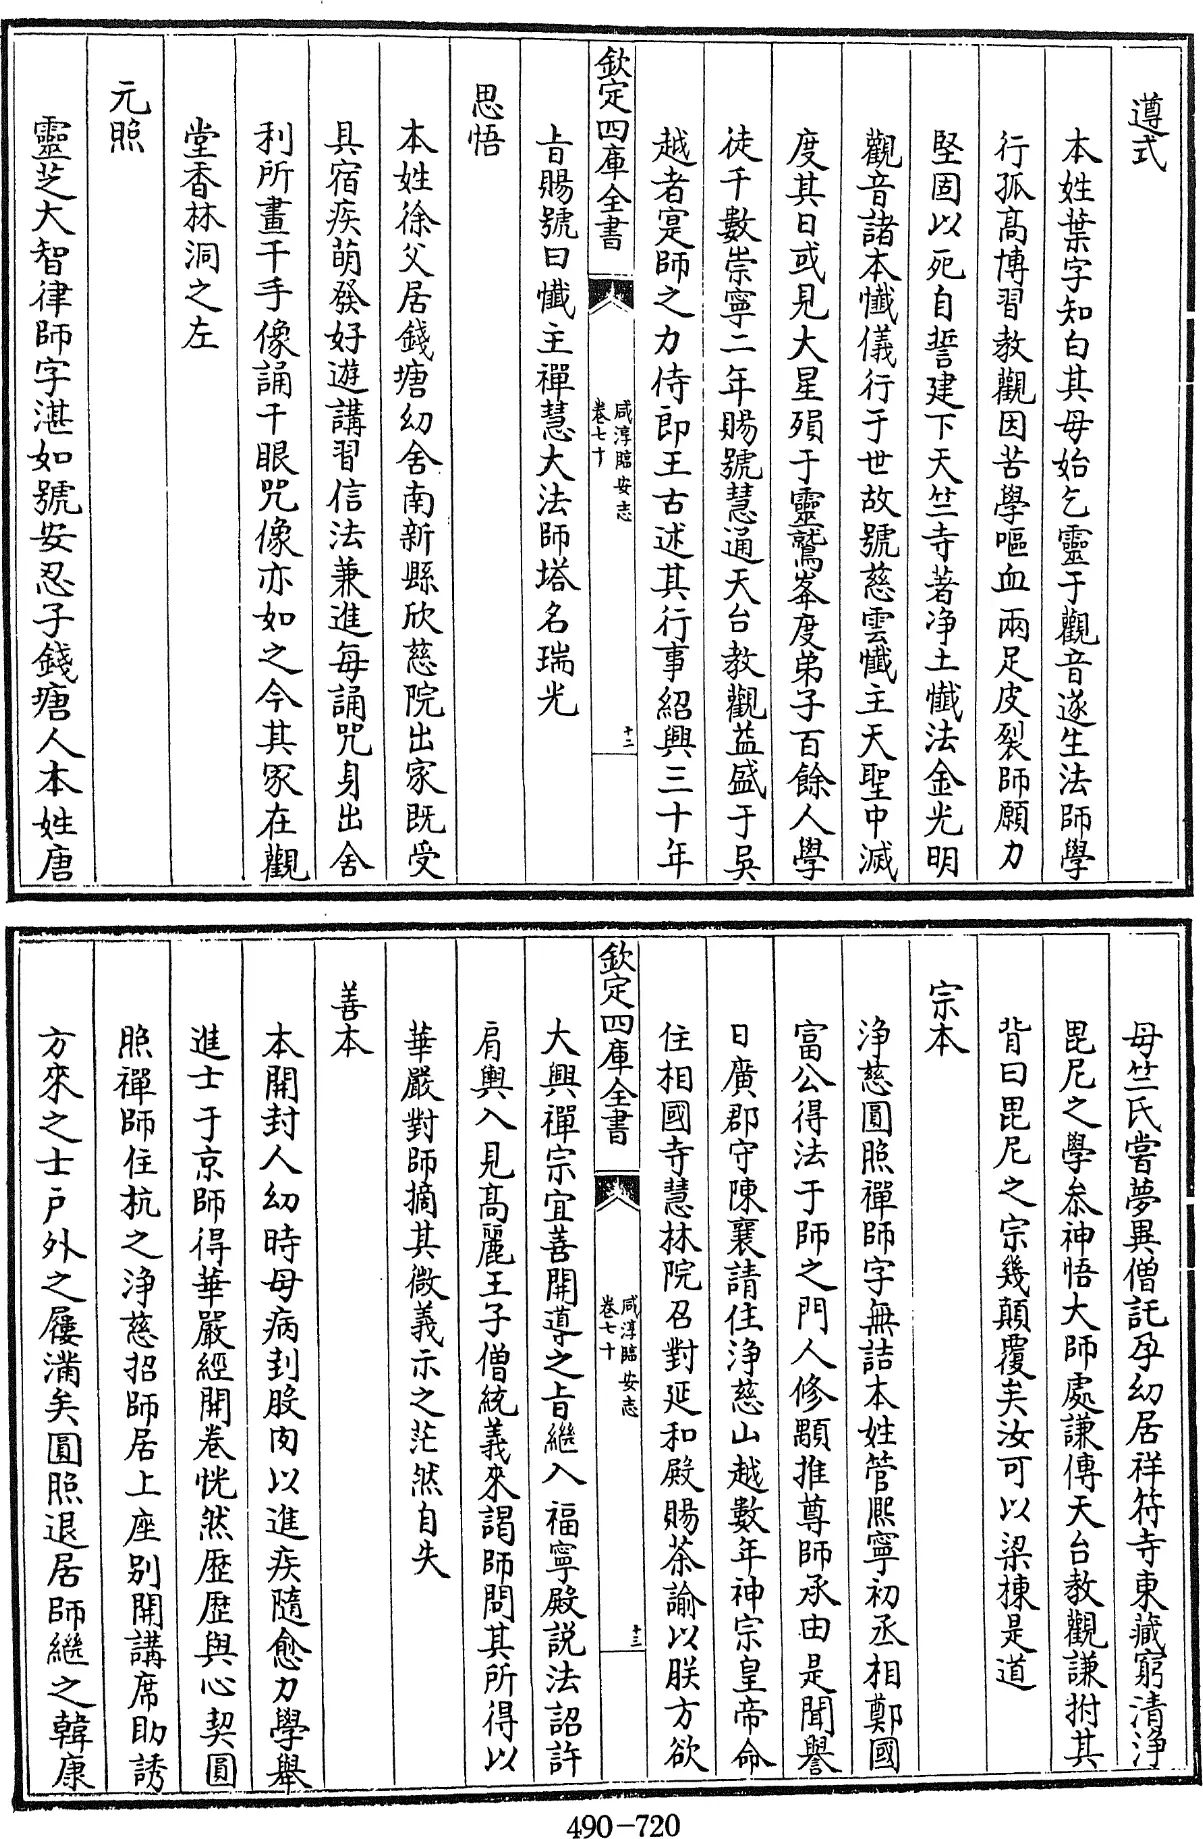 遵式
本姓葉字知白其母始乞靈于觀音遂生法師學
行孤髙博習教觀因苦學嘔血兩足皮裂師願力
堅固以死自誓建下天竺寺著浄土懴法金光明
觀音諸本懴儀行于世故號慈雲懴主天聖中滅
度其日或見大星殞于靈鷲峯度弟子百餘人學
徒千數崇寧二年賜號慧通天台教觀益盛于吳
越者寔師之力侍郎王古述其行事紹興三十年
欽定四庫全書
咸淳臨安志
卷七十
十二
㫖賜號曰懴主禪慧大法師塔名瑞光
思悟
本姓徐父居錢塘幼舍南新縣欣慈院出家既受
具宿疾萌發好遊講習信法兼進每誦咒身出舍
利所畫千手像誦千眼咒像亦如之今其冢在觀
堂香林洞之左
元照
靈芝大智律師字湛如號安忍子錢塘人本姓唐
母竺氏嘗夢異僧託孕幼居祥符寺東藏窮清浄
毘尼之學叅神悟大師處謙傳天台教觀謙拊其
背曰毘尼之宗幾顛覆矣汝可以梁棟是道
宗本
浄慈圓照禪師字無詰本姓管熈寧初丞相鄭國
富公得法于師之門人修顒推尊師承由是聞譽
日廣郡守陳襄請住浄慈山越數年神宗皇帝命
住相國寺慧林院召對延和殿賜茶諭以朕方欲
欽定四庫全書
咸淳臨安志
卷七十
十三
大興禪宗宜善開導之㫖繼入福寧殿説法詔許
肩輿入見髙麗王子僧統義來謁師問其所得以
華嚴對師摘其微義示之茫然自失
善本
本開封人幼時母病刲股肉以進疾隨愈力學舉
進士于京師得華嚴經開卷恍然歴歴與心契圓
照禪師住杭之浄慈招師居上座别開講席助誘
方來之士户外之屨滿矣圓照退居師繼之韓康
490-720